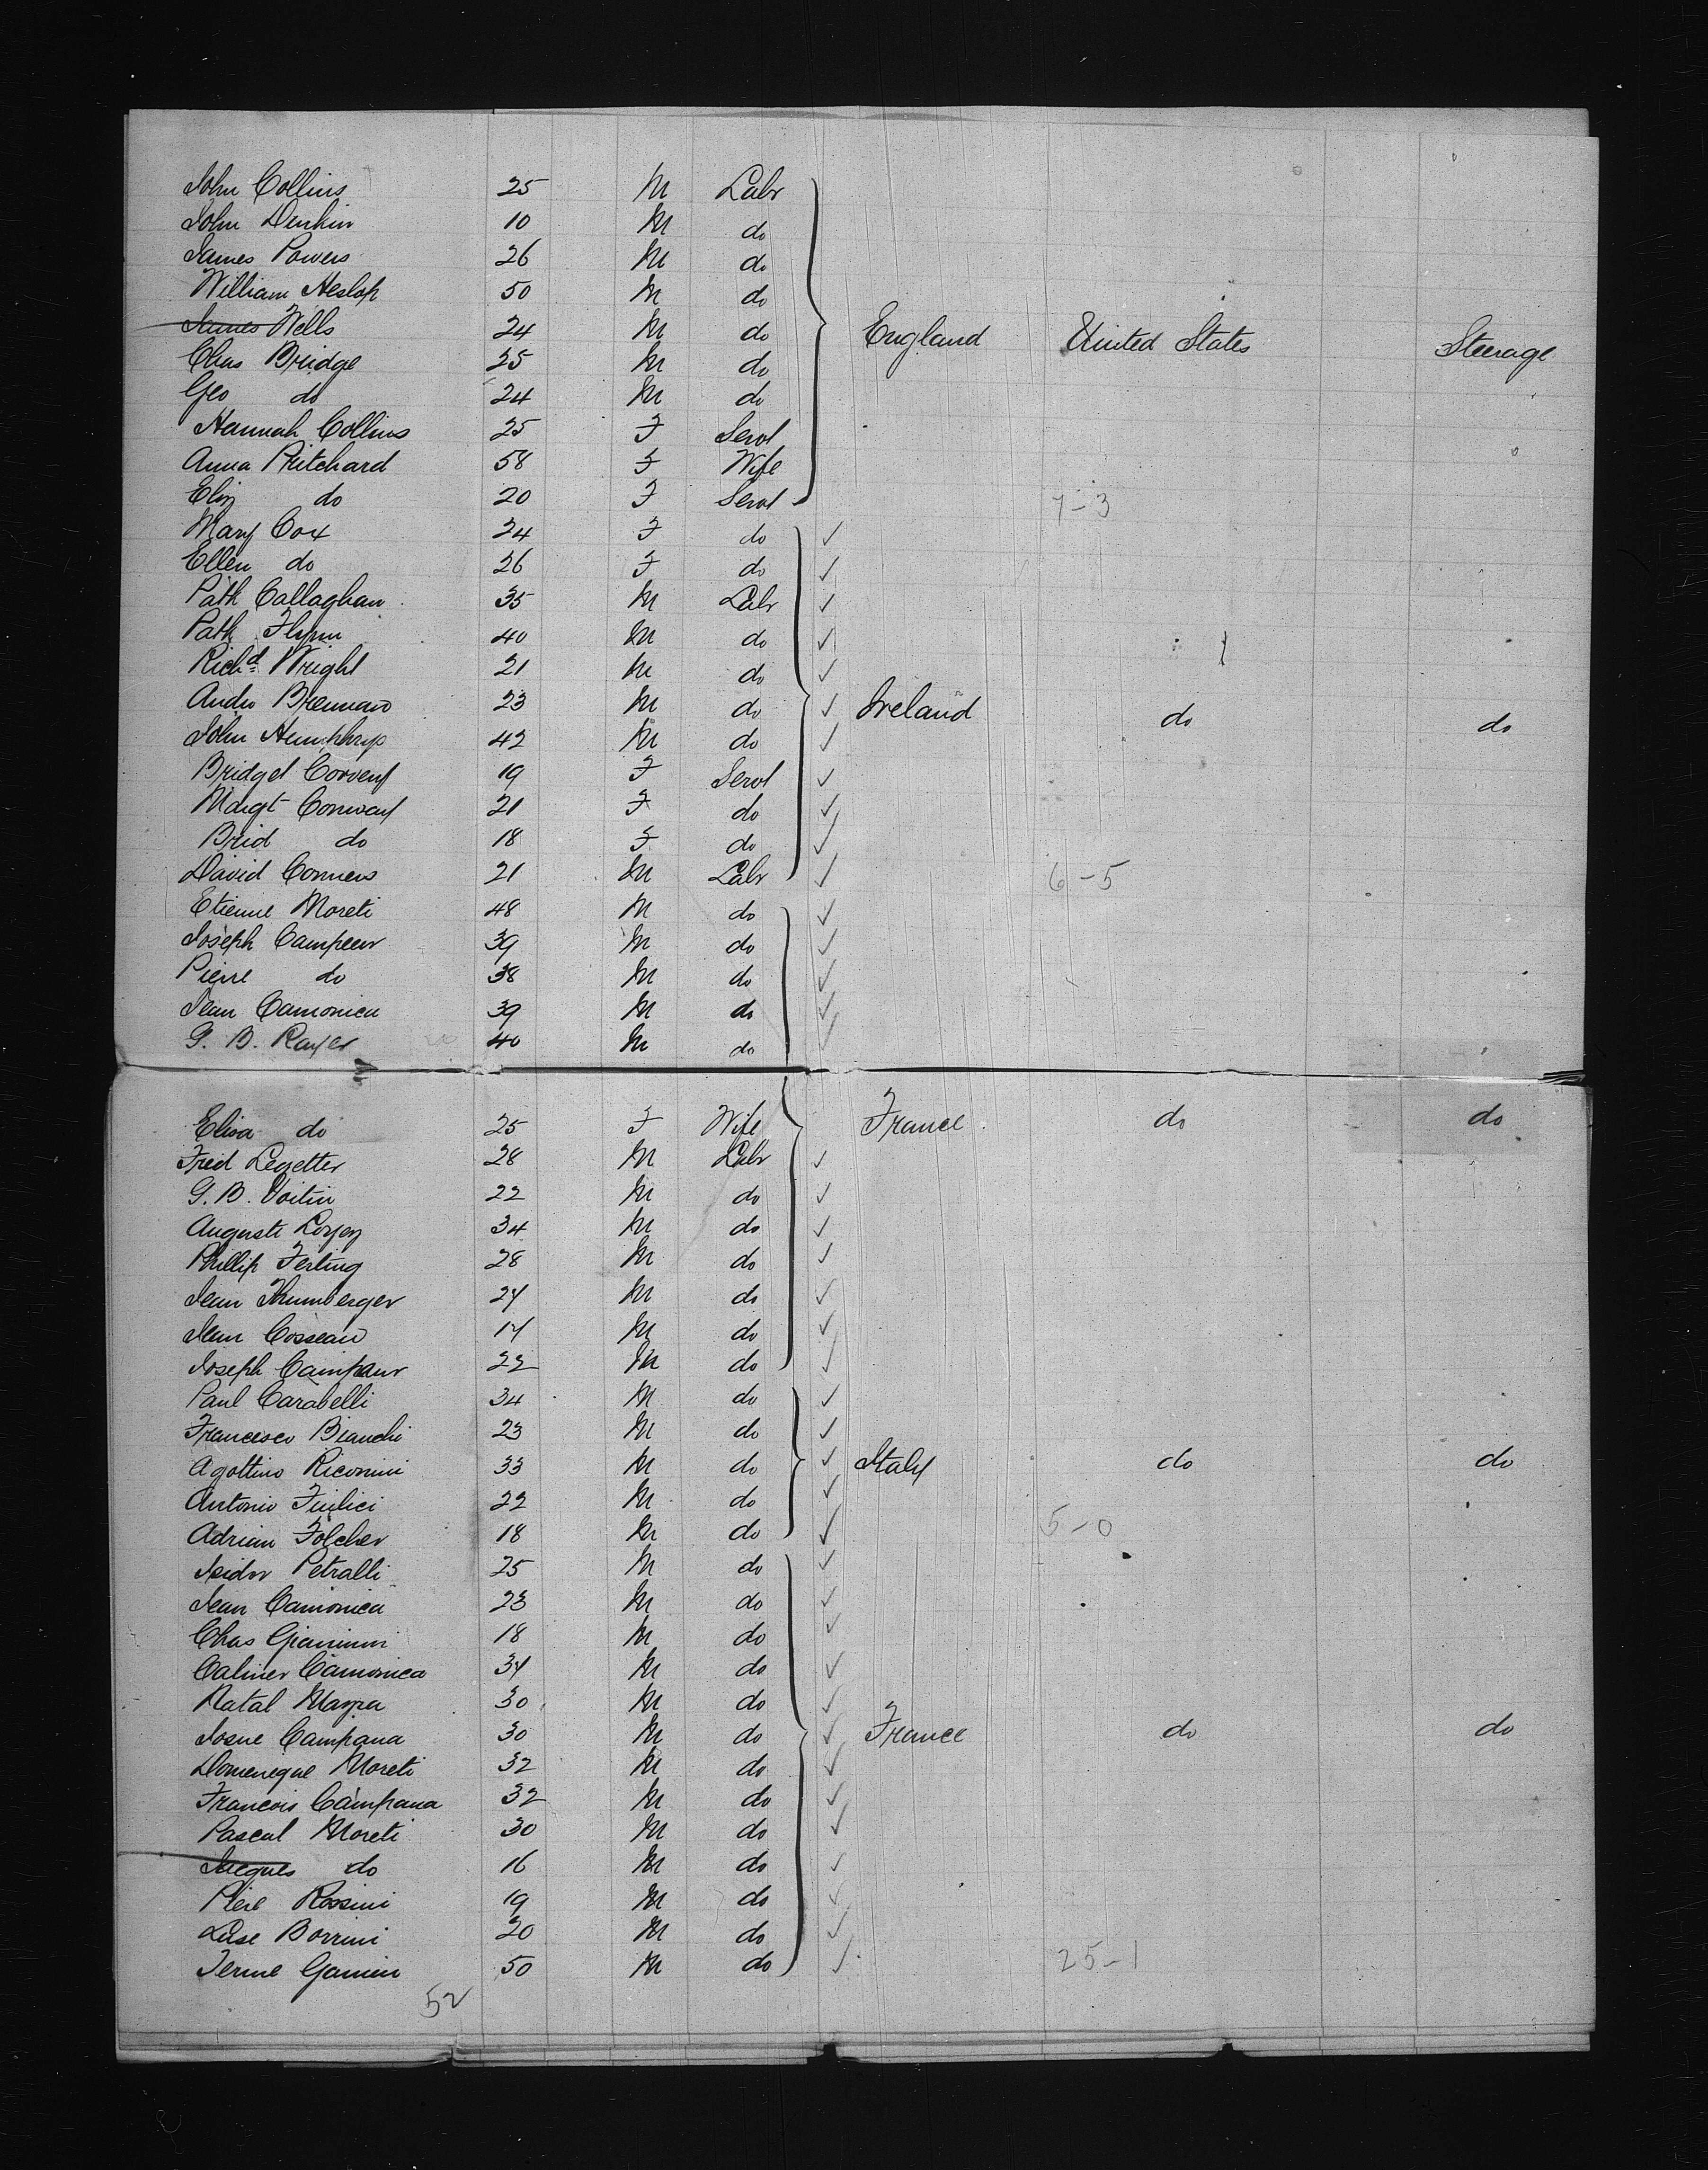 John Collins 25 M Labr
John Denkin 10 M do
James Powers 26 M do
William Heslop 50 M do
James Wells 24 M do England United States Steerage
Chas Bridge 25 M do
Geo do 24 M do
Hannah Collins 25 F Servt
Anna Pritchard 58 F Wife
Eliz do 20 F Servt 7-3
Mary Cox 24 F do
Ellen do 26 F do
Patk Callaghan 35 M Labr
Patk Flynn 40 M do
Richd Wright 21 M do
Andw Brennan 23 M do Ireland do do
John Humphrys 42 M do
Bridget 19 F Servt
Margt Conway 21 F do
Brid do 18 F do
David Conners 21 M Labr 6-5
Etienne Moreti 48 M do
Joseph 39 M do
Pierre do 38 M do
Jean Camonica 39 M do
G. B. Rayer 40 M do
Elisa do 25 F Wife France do do
Fred Legetter 28 M Labr
G. B. Voitin 22 M do
Auguste 34 M do
Phillip Ferting 28 M do
Jean 24 M do
Jean Cosseau 17 M do
Joseph 22 M do
Paul Carabelli 34 M do
Francisco Bianchi 23 M do
Agottino Riconini 33 M do Italy do do
Antonio 22 M do
Adrian Folcher 18 M do 5-0
Isidor Petralli 25 M do
Jean Camonica 23 M do
Chas 18 M do
Camonica 34 M do
Natal 30 M do
Josue Campana 30 M do France do do
Domenique Moreti 32 M do
Francois Campana 32 M do
Pascal Moreti 30 M do
Jacques do 16 M do
Rossini 19 M do
Borrini 20 M do
50 M do 25-1
52